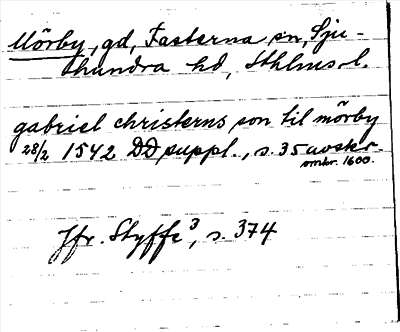 Mörby, gd, Fasterna sn, Sju-
hundra hd, Sthlms l.
gabriel christerns son til mörby
28/2 1542 DD suppl., s. 35 avskr.
omkr. 1600.
Jfr. Styffe³, s. 374